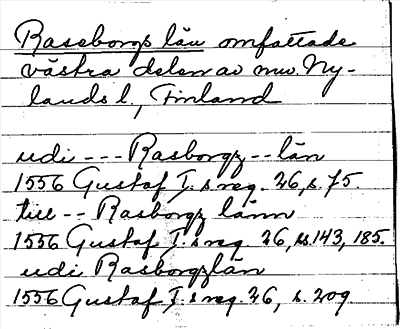 Raseborgs län omfattade
västra delen av nuv. Ny-
lands l., Finland
udi --- Rasborgz -- län
1556 Gustaf I:s reg. 26, s. 75.
till -- Rasborgz länn
1556 Gustaf I:s reg. 26, ss. 143, 185.
udi Rasborgzlän
1556 Gustaf I:s reg. 26, s. 209.